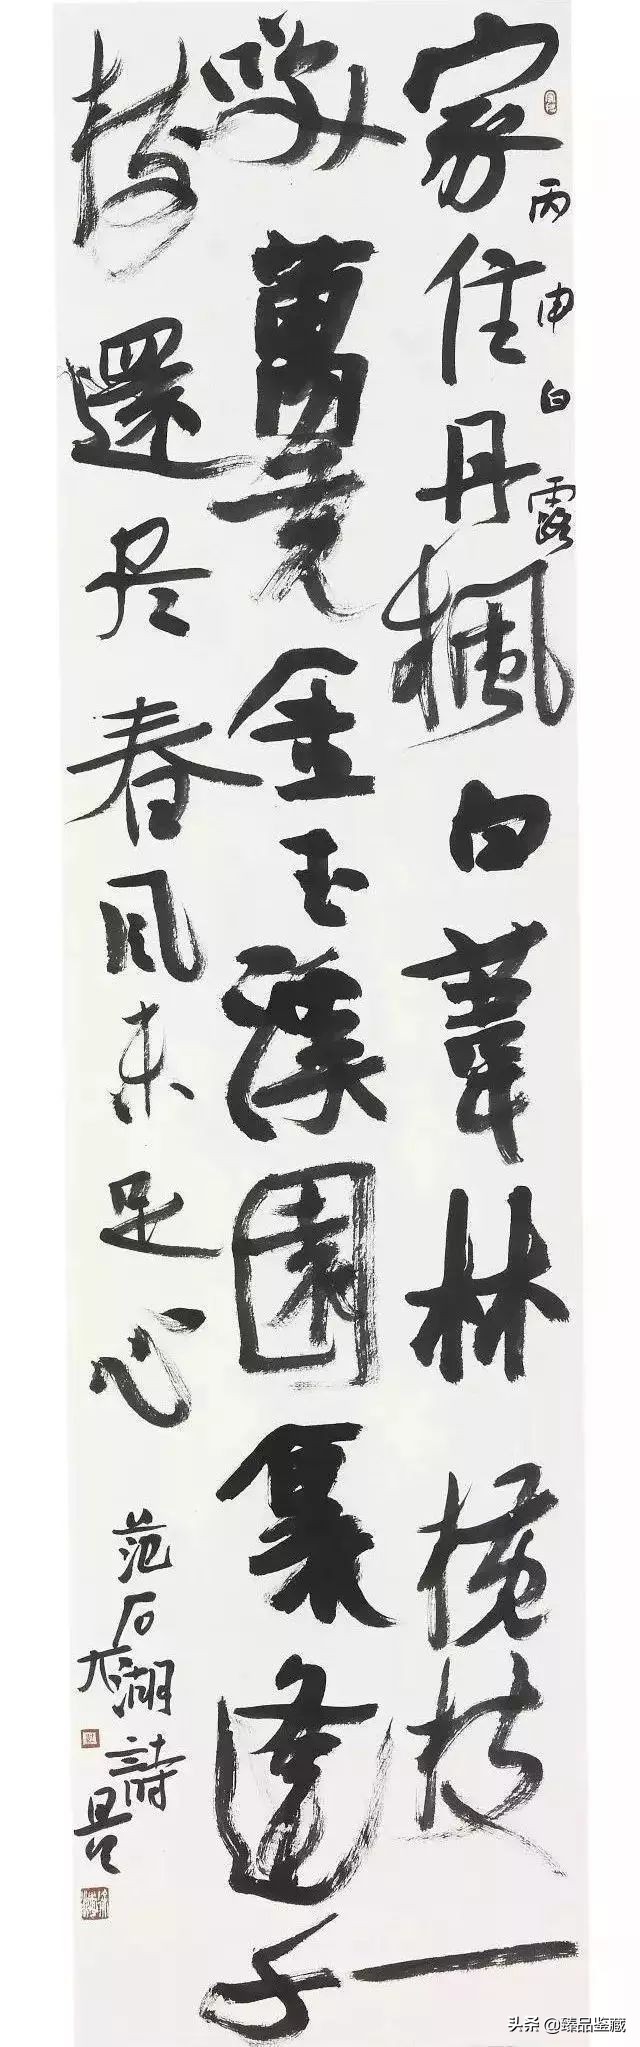 丙申白露
家住丹楓白葦林橫枝一
咲萬黃金玉溪園裏逢千
树還尽春风未足心
范石湖詩
头条 @臻品鉴藏